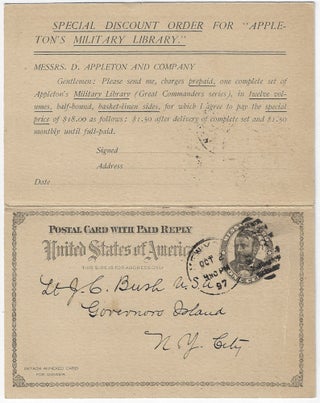 SPECIAL DISCOUNT ORDER FOR "APPLE-
TON'S MILITARY LIBRARY."
MESSRS. D. APPLETON AND COMPANY
Gentlemen: Please send me, charges prepaid, one complete set of
Appleton's Military Library (Great Commanders series), in twelve vol-
umes, half-bound, basket-linen sides, for which I agree to pay the special
price of $18.00 as follows: $1.50 after delivery of complete set and $1.50
monthly until full-paid.
Signed
Address
Date
POSTAL CARD WITH PAID REPLY
United States of America
THIS SIDE IS FOR ADDRESS ONLY
OCT
97
Lt J. C. Bush U.S.A.
Governors Island
N.Y. City
DETACH ANNEXED CARD
FOR ANSWER